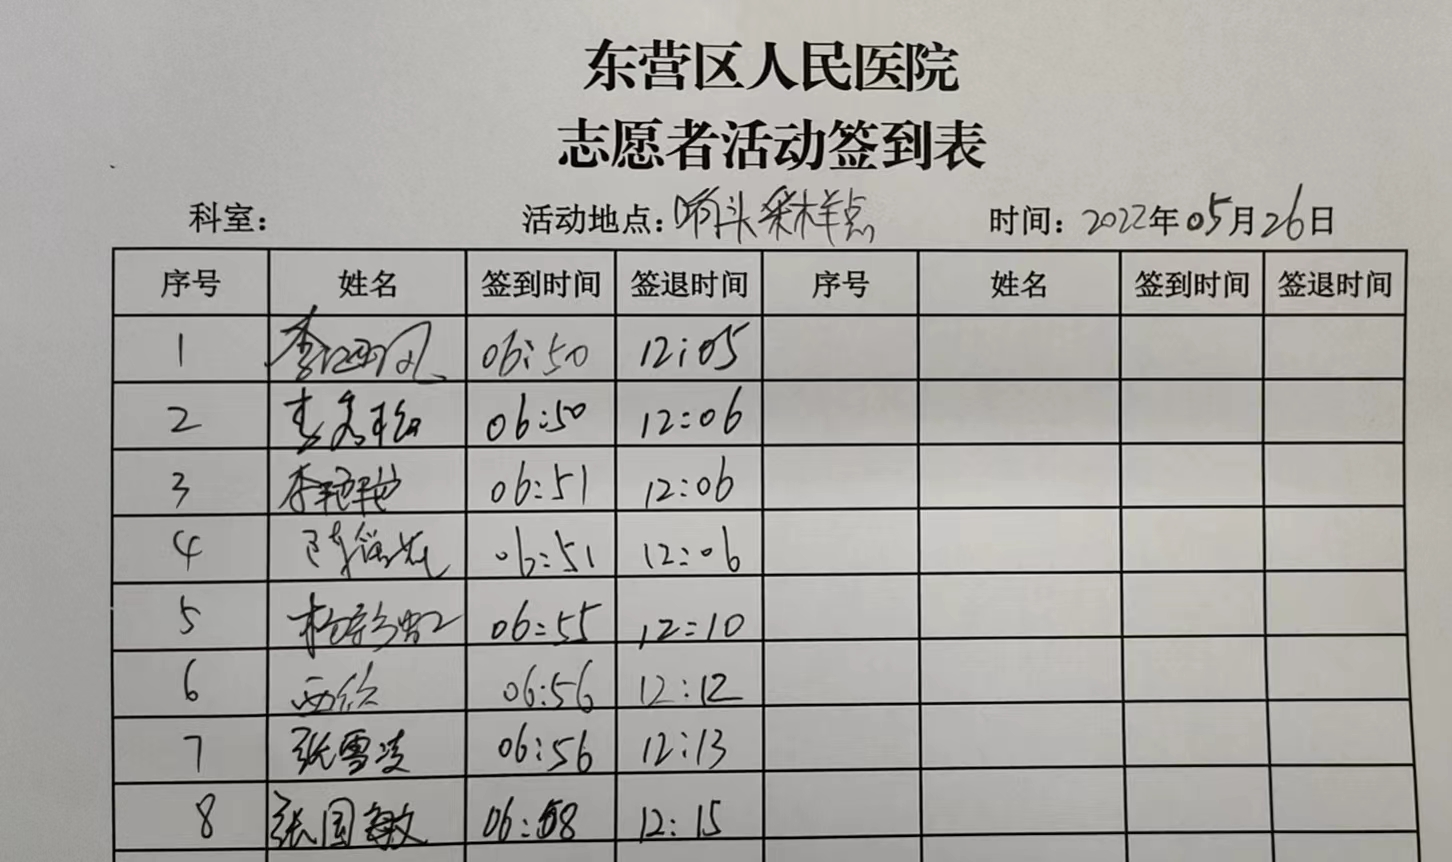 东营区人民医院
志愿者活动签到表
科室： 活动地点：哨头采样点 时间：2022年05月26日
序号 姓名 签到时间 签退时间 序号 姓名 签到时间 签退时间
1 06:50 12:05
2 06:50 12:06
3 李艳艳 06:51 12:06
4 06:51 12:06
5 06:55 12:10
6 06:56 12:12
7 张雪凌 06:56 12:13
8 张国敏 06:58 12:15